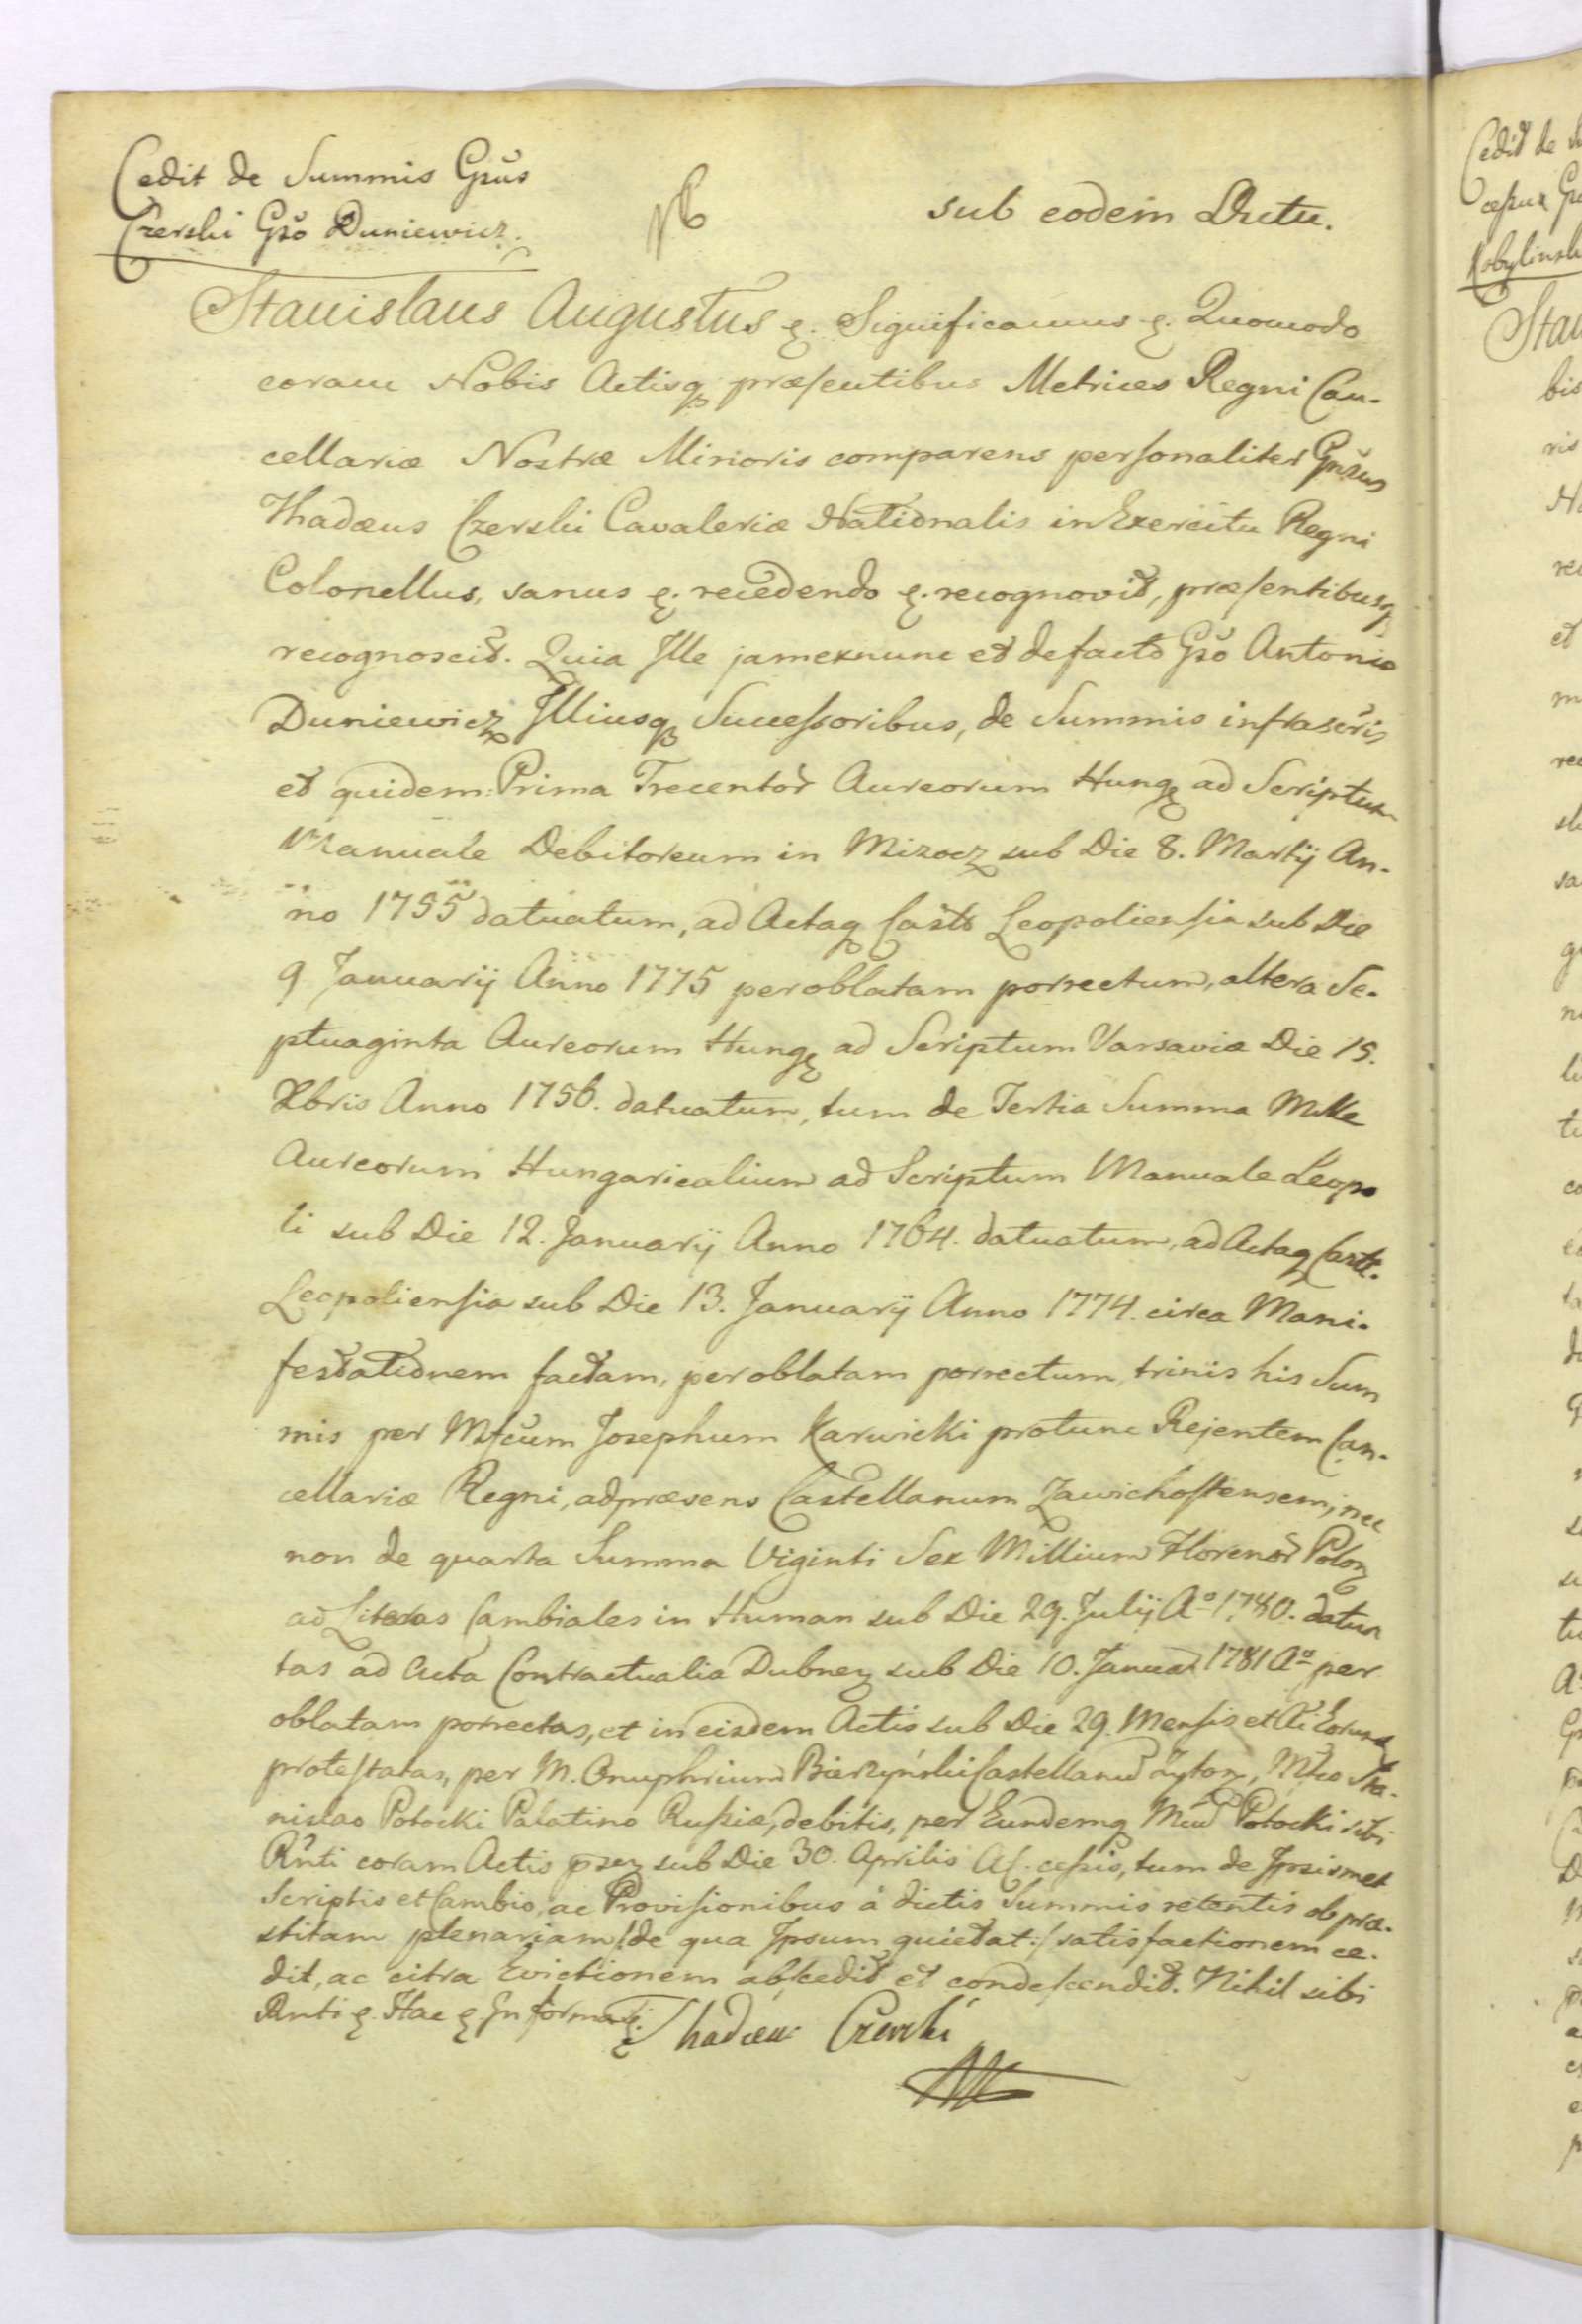 Cedit de Summis Gsus
Czerski Gso Duniewicz.
sub eodem Actu.
Stanislaus Augustus ę. Significamus ę. Quomodo
coram Nobis Actisq præsentibus Metrices Regni Can-
cellariæ Nostræ Minoris comparens personaliter Gnsus
Thadæus Czerski Cavaleriæ Nationalis in Exercitu Regni
Colonellus, sanus ę. recedendo ę. recognovit, præsentibusq
recognoscit. Quia Ille jamexnunc et defacto Gso Antonio
Duniewicz Illiusq Successoribus, de Summis infrascris
et quidem: Prima Trecentor Aureorum Hung ad Scriptum
Manuale Debitoreum in Mizocz sub Die 8. Martij An-
no 1755 datuatum, ad Actaq Castr Leopoliensia sub Die
9 Januarij Anno 1775 per oblatam porrectum, altera Se-
ptuaginta Aureorum Hung ad Scriptum Varsaviæ Die 15.
Xbris Anno 1756. datuatum, tum de Tertia Summa Mille
Aureorum Hungaricalium ad Scriptum Manuale Leopo
li sub Die 12. Januarij Anno 1764. datuatum, ad Actaq Castr.
Leopoliensia sub Die 13. Januarij Anno 1774. circa Mani-
festationem factam, per oblatam porrectum, trinis his Sum
mis per Mfcum Josephum Karwicki protunc Rejentem Can-
cellariæ Regni, adpræsens Castellanum Zawichostensem, nec
non de quarta Summa Viginti Sex Millium Florenor Polon
ad Literas Cambiales in Human sub Die 29. Julij Ao 1780. datua
tas ad Acta Contractualia Dubnen sub Die 10. Januar 1781 Ao per
oblatam porrectas, et in eisdem Actis sub Die 29. Mensis et Ai Eorund
protestatas, per M. Onuphrium Bierzyński Castellanum Zytom, Mfco Sta-
nislao Potocki Palatino Russiæ, debitis, per Eundemq Mcum Potocki sibi
Rnti coram Actis psen sub Die 30. Aprilis A. c. cessis, tum de Ipsismet
Scriptis et Cambio, ac Provisionibus à dictis Summis retentis ob præ-
stitam plenariam /:de qua Ipsum quietat:/ satisfactionem ce-
dit, ac citra Evictionem abscedit et condescendit. Nihil sibi
Rnti ę. Hac ę In forma ę. Thadæus Czerski